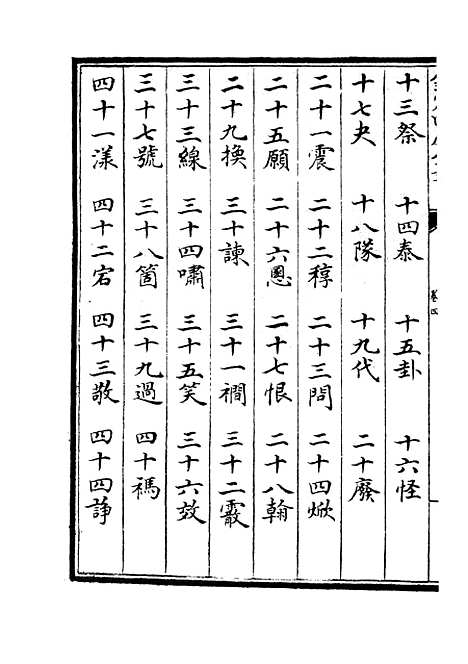 十三祭 十四泰 十五卦 十六怪
十七夬 十八隊 十九代 二十廢
二十一震 二十二稕 二十三問 二十四焮
二十五願 二十六慁 二十七恨 二十八翰
二十九換 三十諫 三十一襇 三十二霰
三十三線 三十四嘯 三十五笑 三十六效
三十七號 三十八箇 三十九過 四十禡
四十一漾 四十二宕 四十三敬 四十四諍
卷四